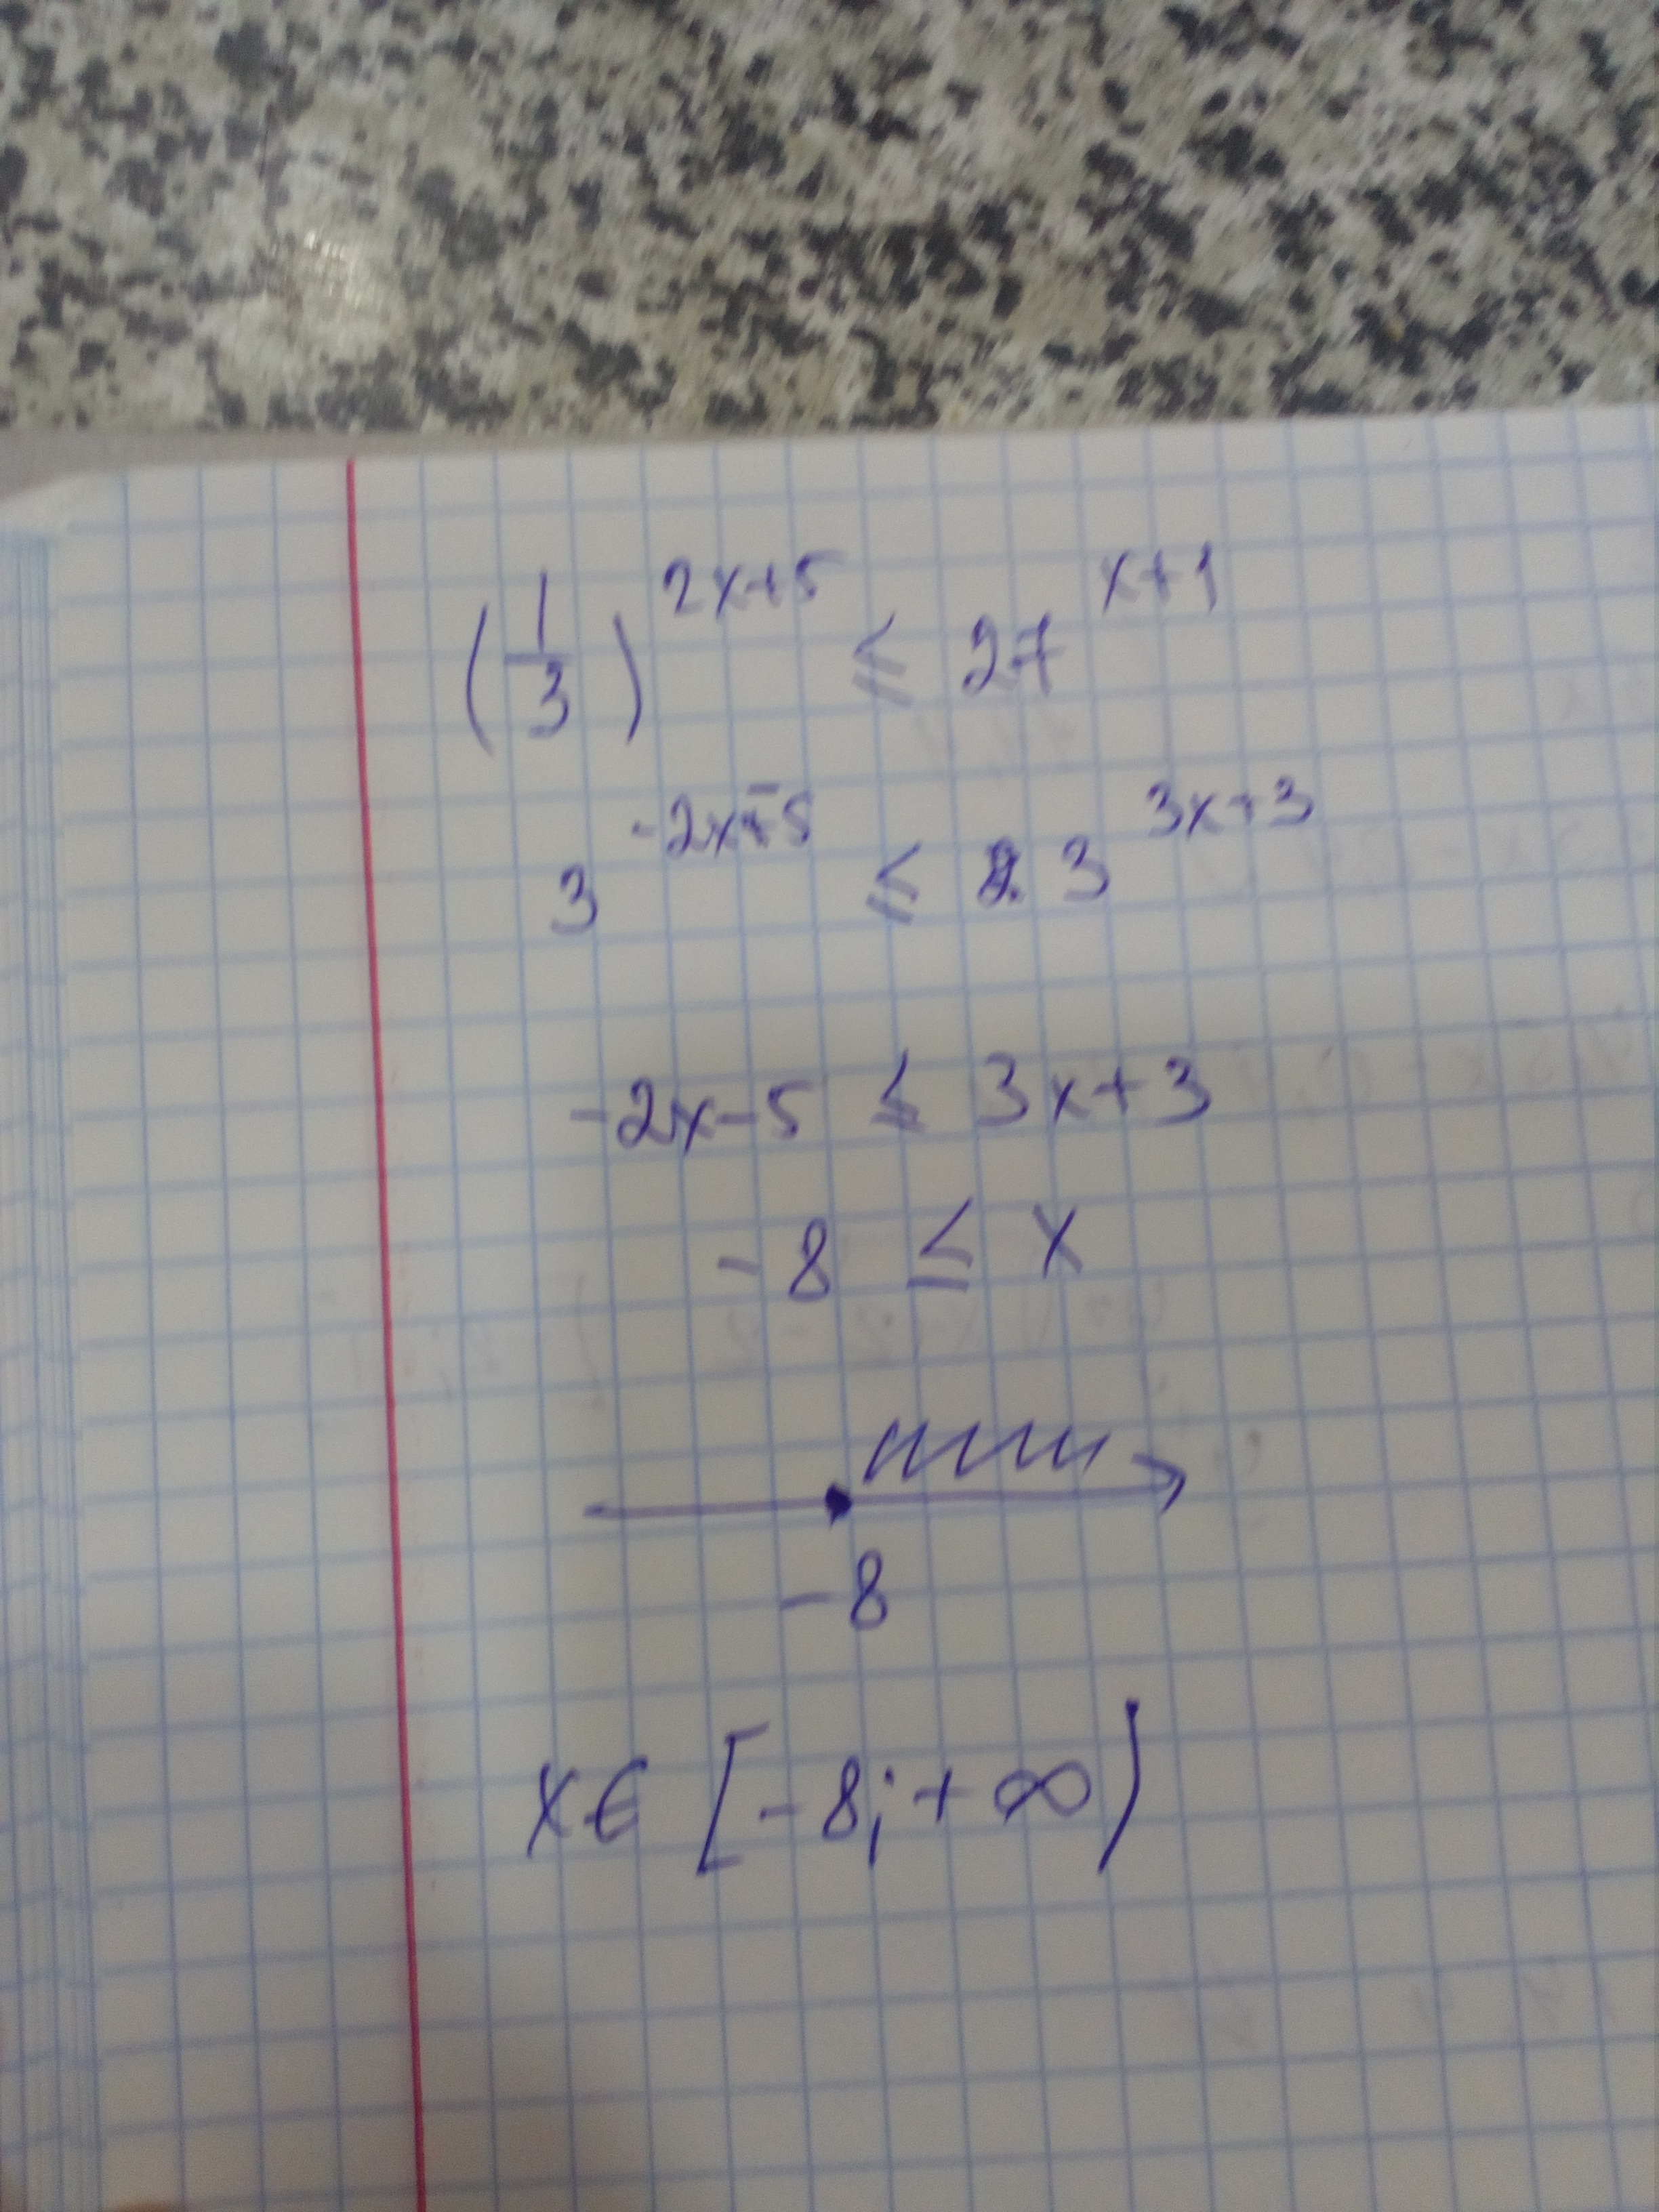 (1/3)^2x+5 ≤ 27^x+1
3^-2x-5 ≤ 3^3x+3
-2x-5 ≤ 3x+3
-8 ≤ x
-8
x∈ [-8;+∞)